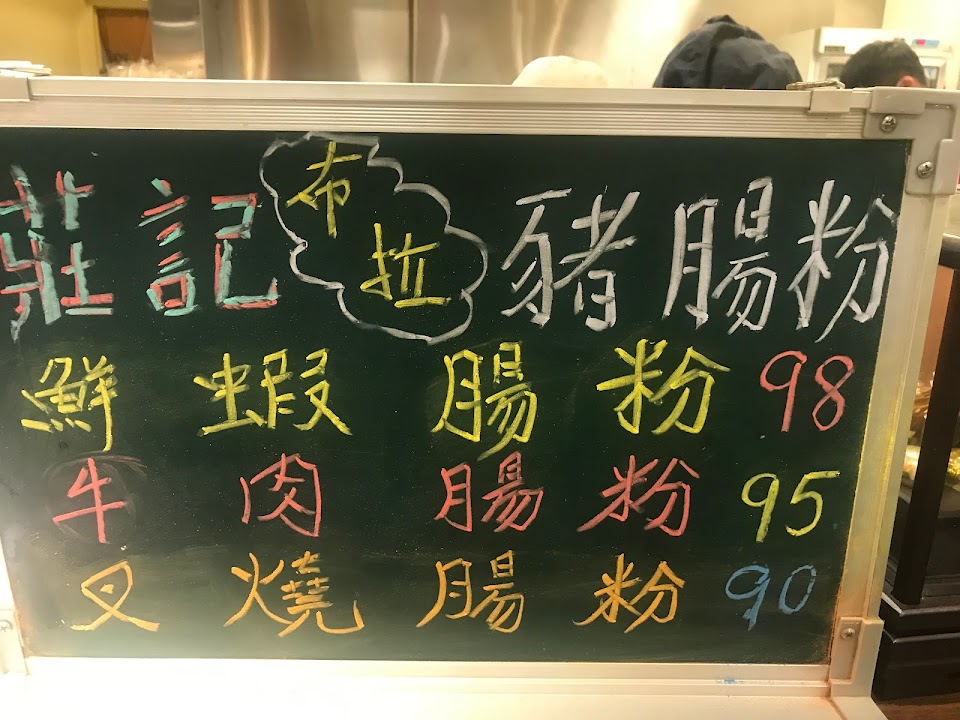 莊記 布拉 豬腸粉
鮮蝦腸粉 98
牛肉腸粉 95
叉燒腸粉 90